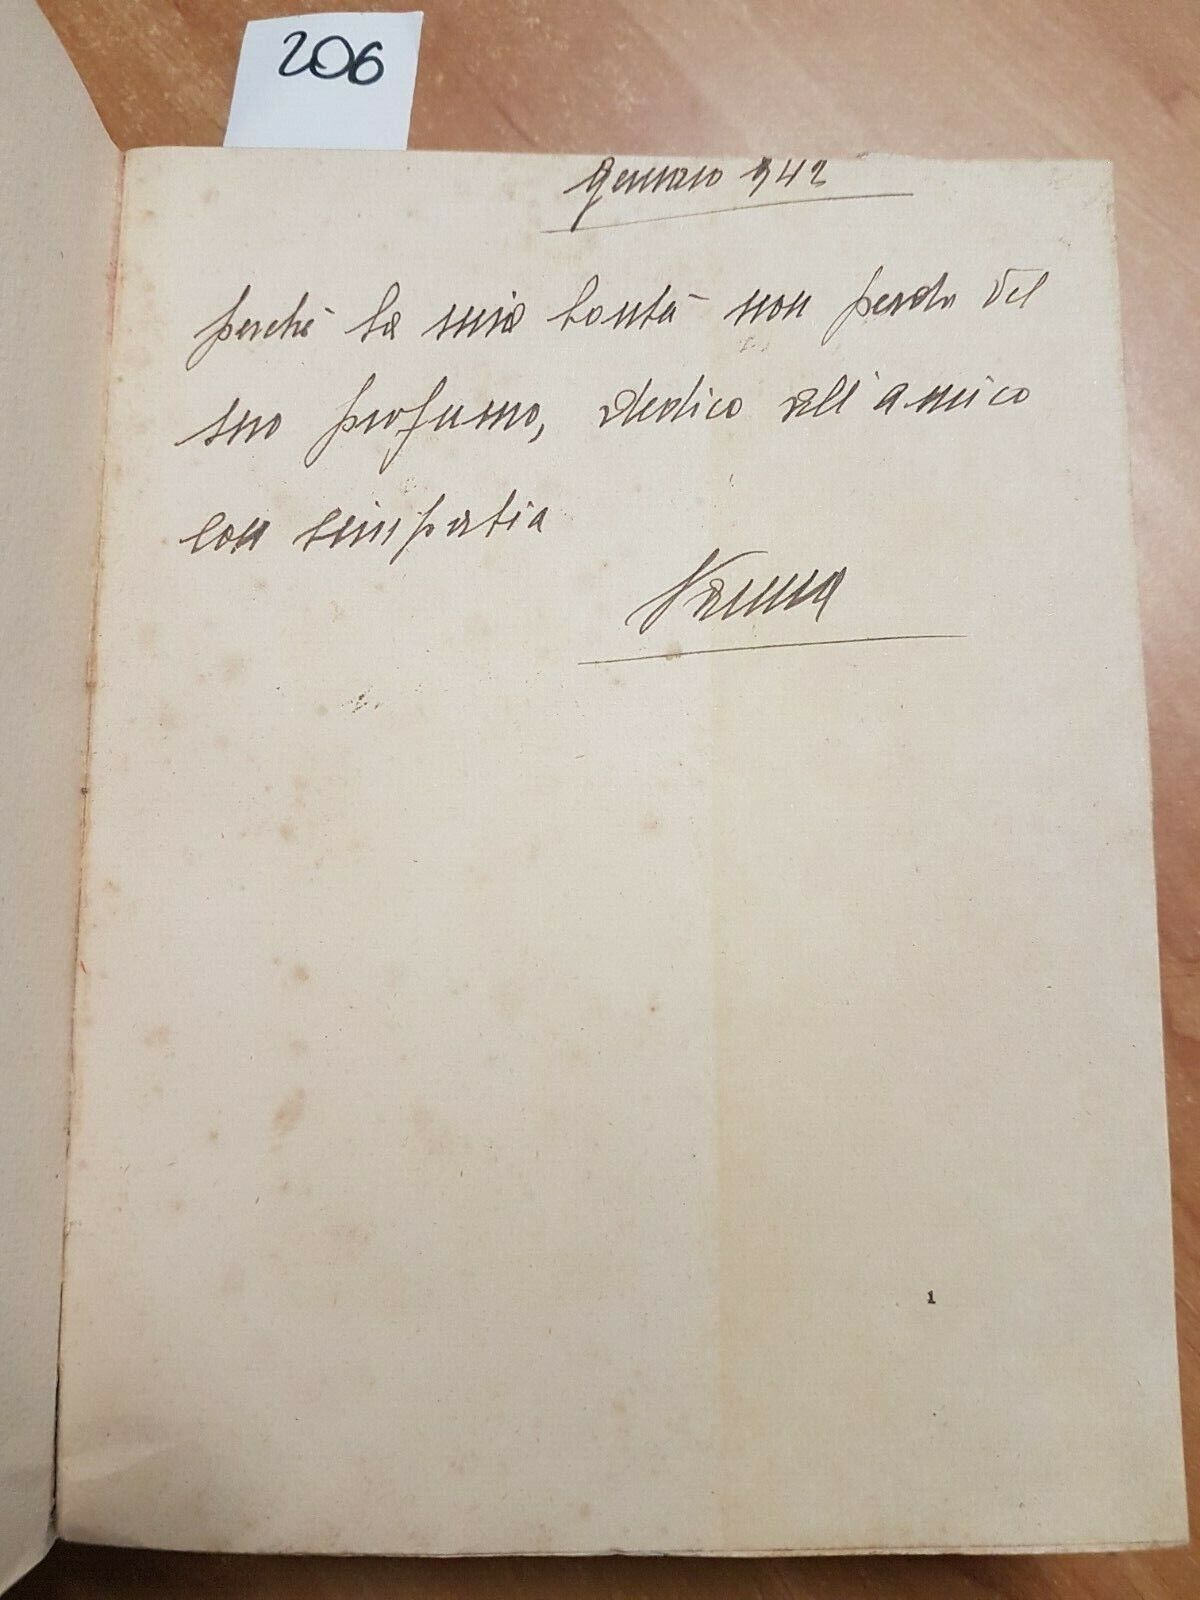 206
Gennaio 942
perchè la mia bontà non perda del
suo profumo, dedico all'amico
con simpatia
1